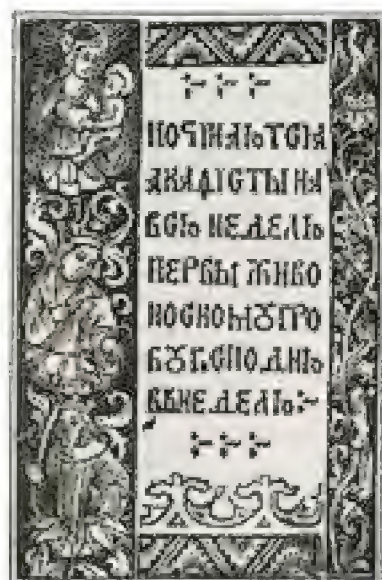 ПОЧИНАЮТСІА
АКАѲІСТЫ НА
ВСЮ НЕДЕЛЮ
ПЕРВЫ ЖИВО
НОСНОМꙊ ГРО
БꙊ ГСПОДНЮ
ВЪ НЕДЕЛЮ :~